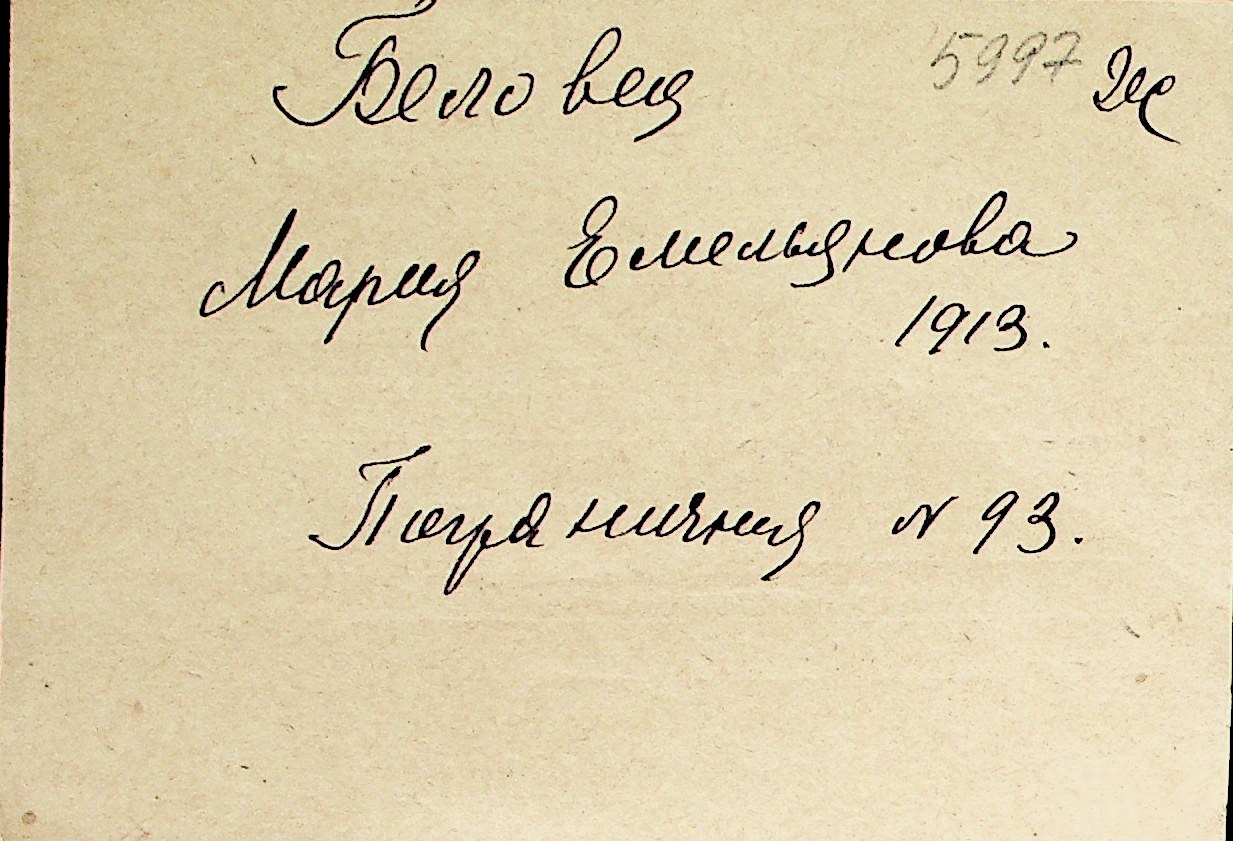 Беловец 5997 Ж
Мария Емельянова
1913.
Пограничная № 93.